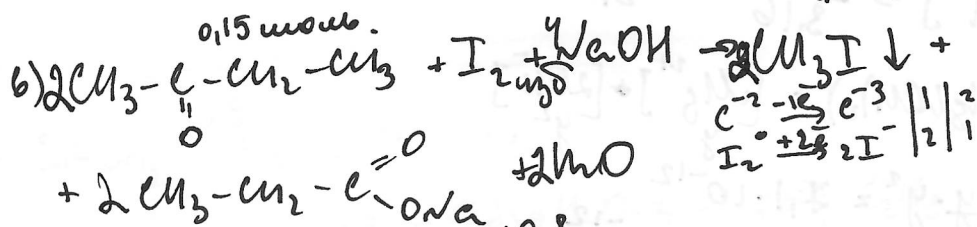 0,15 моль.
6) 2CH₃-C-CH₂-CH₃ + I₂ изб + 4NaOH → 2CH₃I ↓ +
O
C⁻² -1e⁻ → C⁻³ | 1 | 2
I₂⁰ +2e⁻ → 2I⁻ | 2 | 1
+ 2 CH₃-CH₂-C =O -ONa +2H₂O